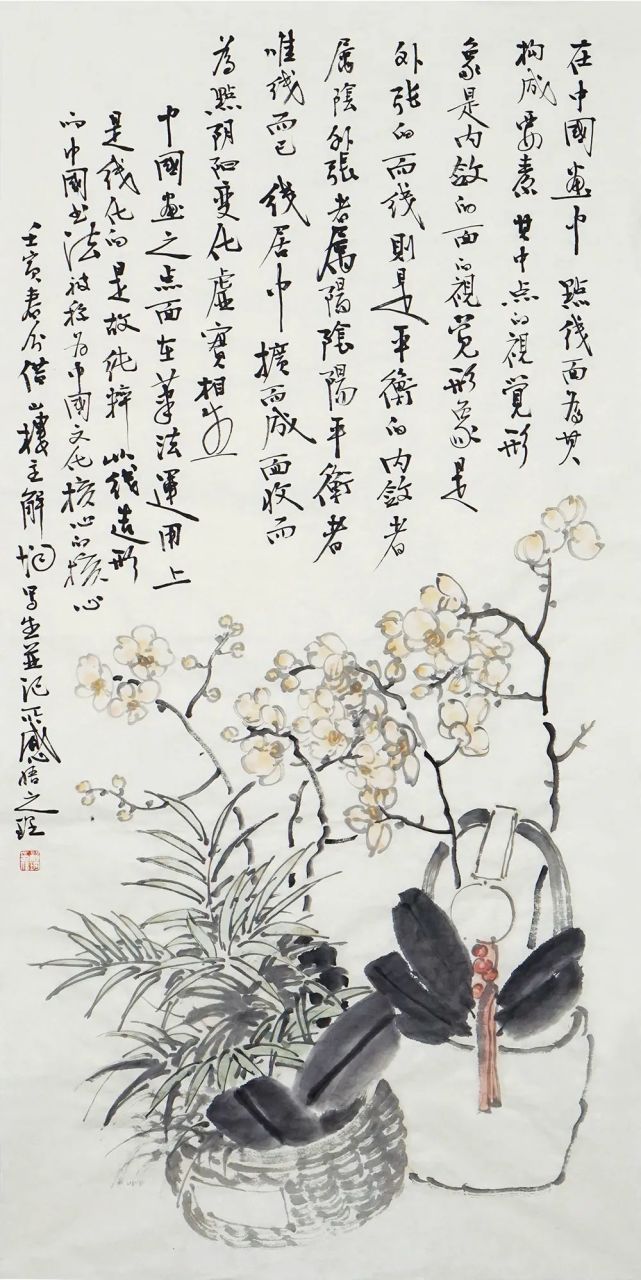 在中國畫中 點线面為其
构成要素 其中点的視覺形
象是内敛的面的視覺形象是
外張的而线則是平衡的内斂者
属陰外張者属陽陰陽平衡者
唯线而已 线居中擴而成面收而
為點阴阳变化虚實相生
中國畫之点面在筆法運用上
是线化的是故纯粹以线造形
的中國书法被称为中國文化核心的核心
壬寅春分借山樓主解恂写生并记所感悟之理